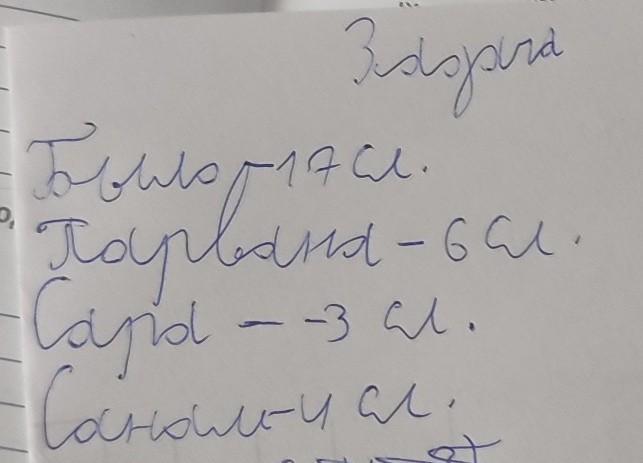 Задача
Было - 17 сл.
Парвана - 6 сл.
Сара - -3 сл.
Санам - 4 сл.